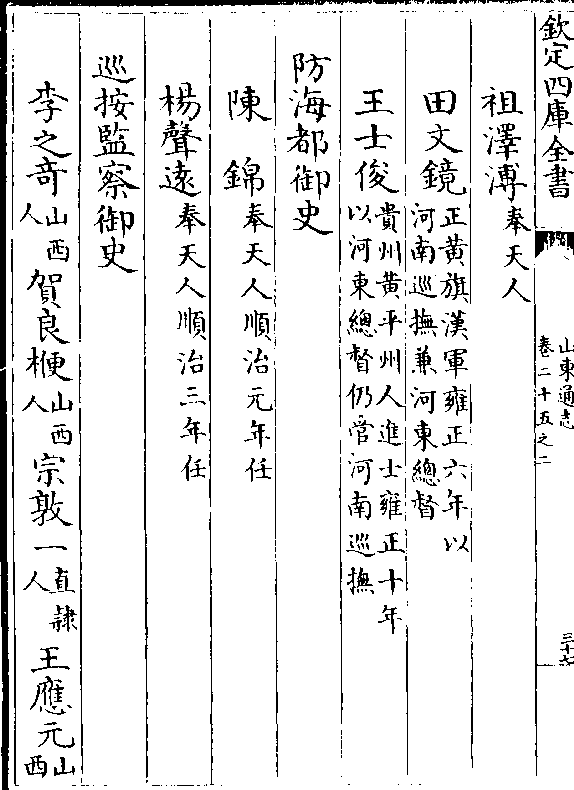 欽定四庫全書
山東通志
卷二十五之二
祖澤溥奉天人
田文鏡正黃旗漢軍雍正六年以河南巡撫兼河東總督
王士俊貴州黃平州人進士雍正十年以河東總督仍管河南巡撫
防海都御史
陳錦奉天人順治元年任
楊聲遠奉天人順治三年任
巡按監察御史
李之奇山西人賀良楩山西人宗敦一直隸人王應元山西